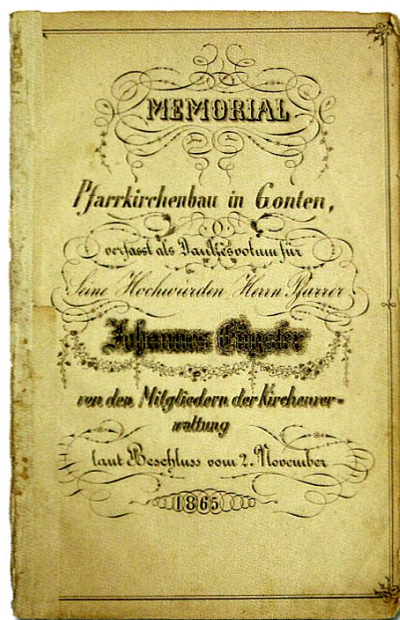 MEMORIAL
Pfarrkirchenbau in Gonten,
verfasst als Dankesvotum für
Seine Hochwürden Herrn Pfarrer
Johannes
von den Mitgliedern der Kirchenver=
waltung
laut Beschluss vom 2. November
1865